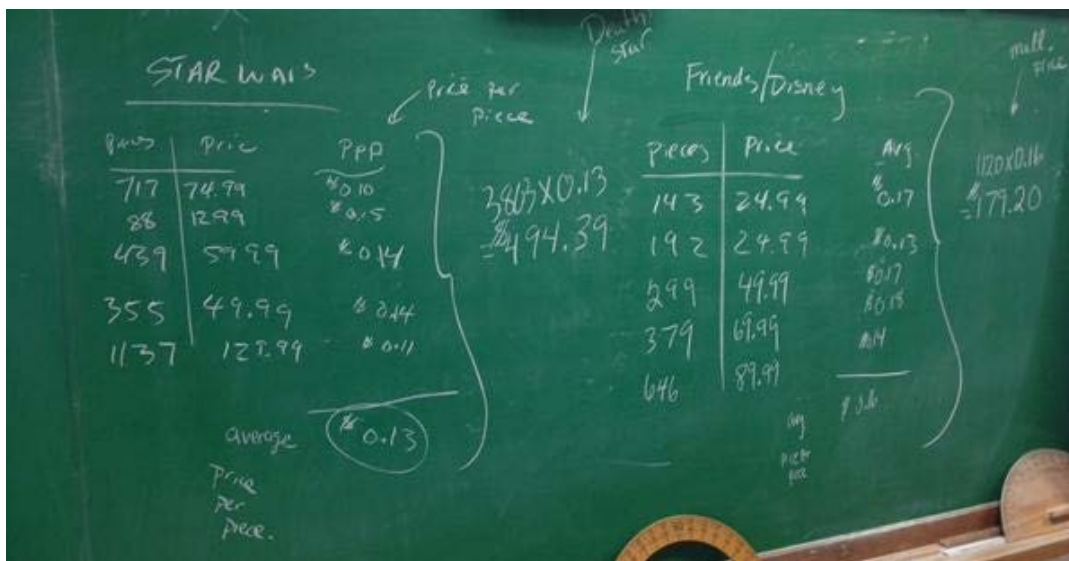 STAR WARS
Price Per
Piece
Price PPP
717 74.99 $0.10
88 12.99 $0.15
439 59.99 $0.14
355 49.99 $0.14
1137 129.99 $0.11
average $0.13
price
per
piece.
Death
star
3803X0.13
=$494.39
Friends/Disney
Pieces Price Avg.
143 24.99 $0.17
192 24.99 $0.13
299 49.99 $0.17
379 69.99 $0.18
646 89.99 0.14
avg
1120X0.16
=$179.20